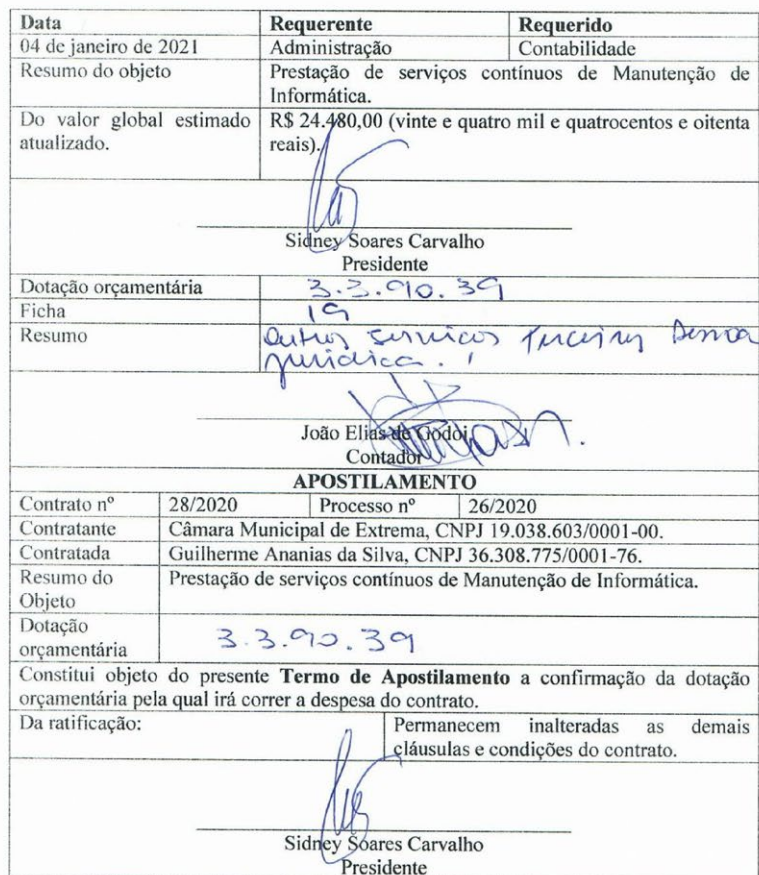 Data Requerente Requerido
04 de janeiro de 2021 Administração Contabilidade
Resumo do objeto Prestação de serviços contínuos de Manutenção de
Informática.
Do valor global estimado R$ 24.480,00 (vinte e quatro mil e quatrocentos e oitenta
atualizado. reais).
Sidney Soares Carvalho
Presidente
Dotação orçamentária 3.3.90.39
Ficha 19
Resumo Outros serviços Terceiros Pessoa
jurídica.
João Elias de Godoi
Contador
APOSTILAMENTO
Contrato nº 28/2020 Processo nº 26/2020
Contratante Câmara Municipal de Extrema, CNPJ 19.038.603/0001-00.
Contratada Guilherme Ananias da Silva, CNPJ 36.308.775/0001-76.
Resumo do Prestação de serviços contínuos de Manutenção de Informática.
Objeto
Dotação
orçamentária 3.3.90.39
Constitui objeto do presente Termo de Apostilamento a confirmação da dotação
orçamentária pela qual irá correr a despesa do contrato.
Da ratificação: Permanecem inalteradas as demais
cláusulas e condições do contrato.
Sidney Soares Carvalho
Presidente